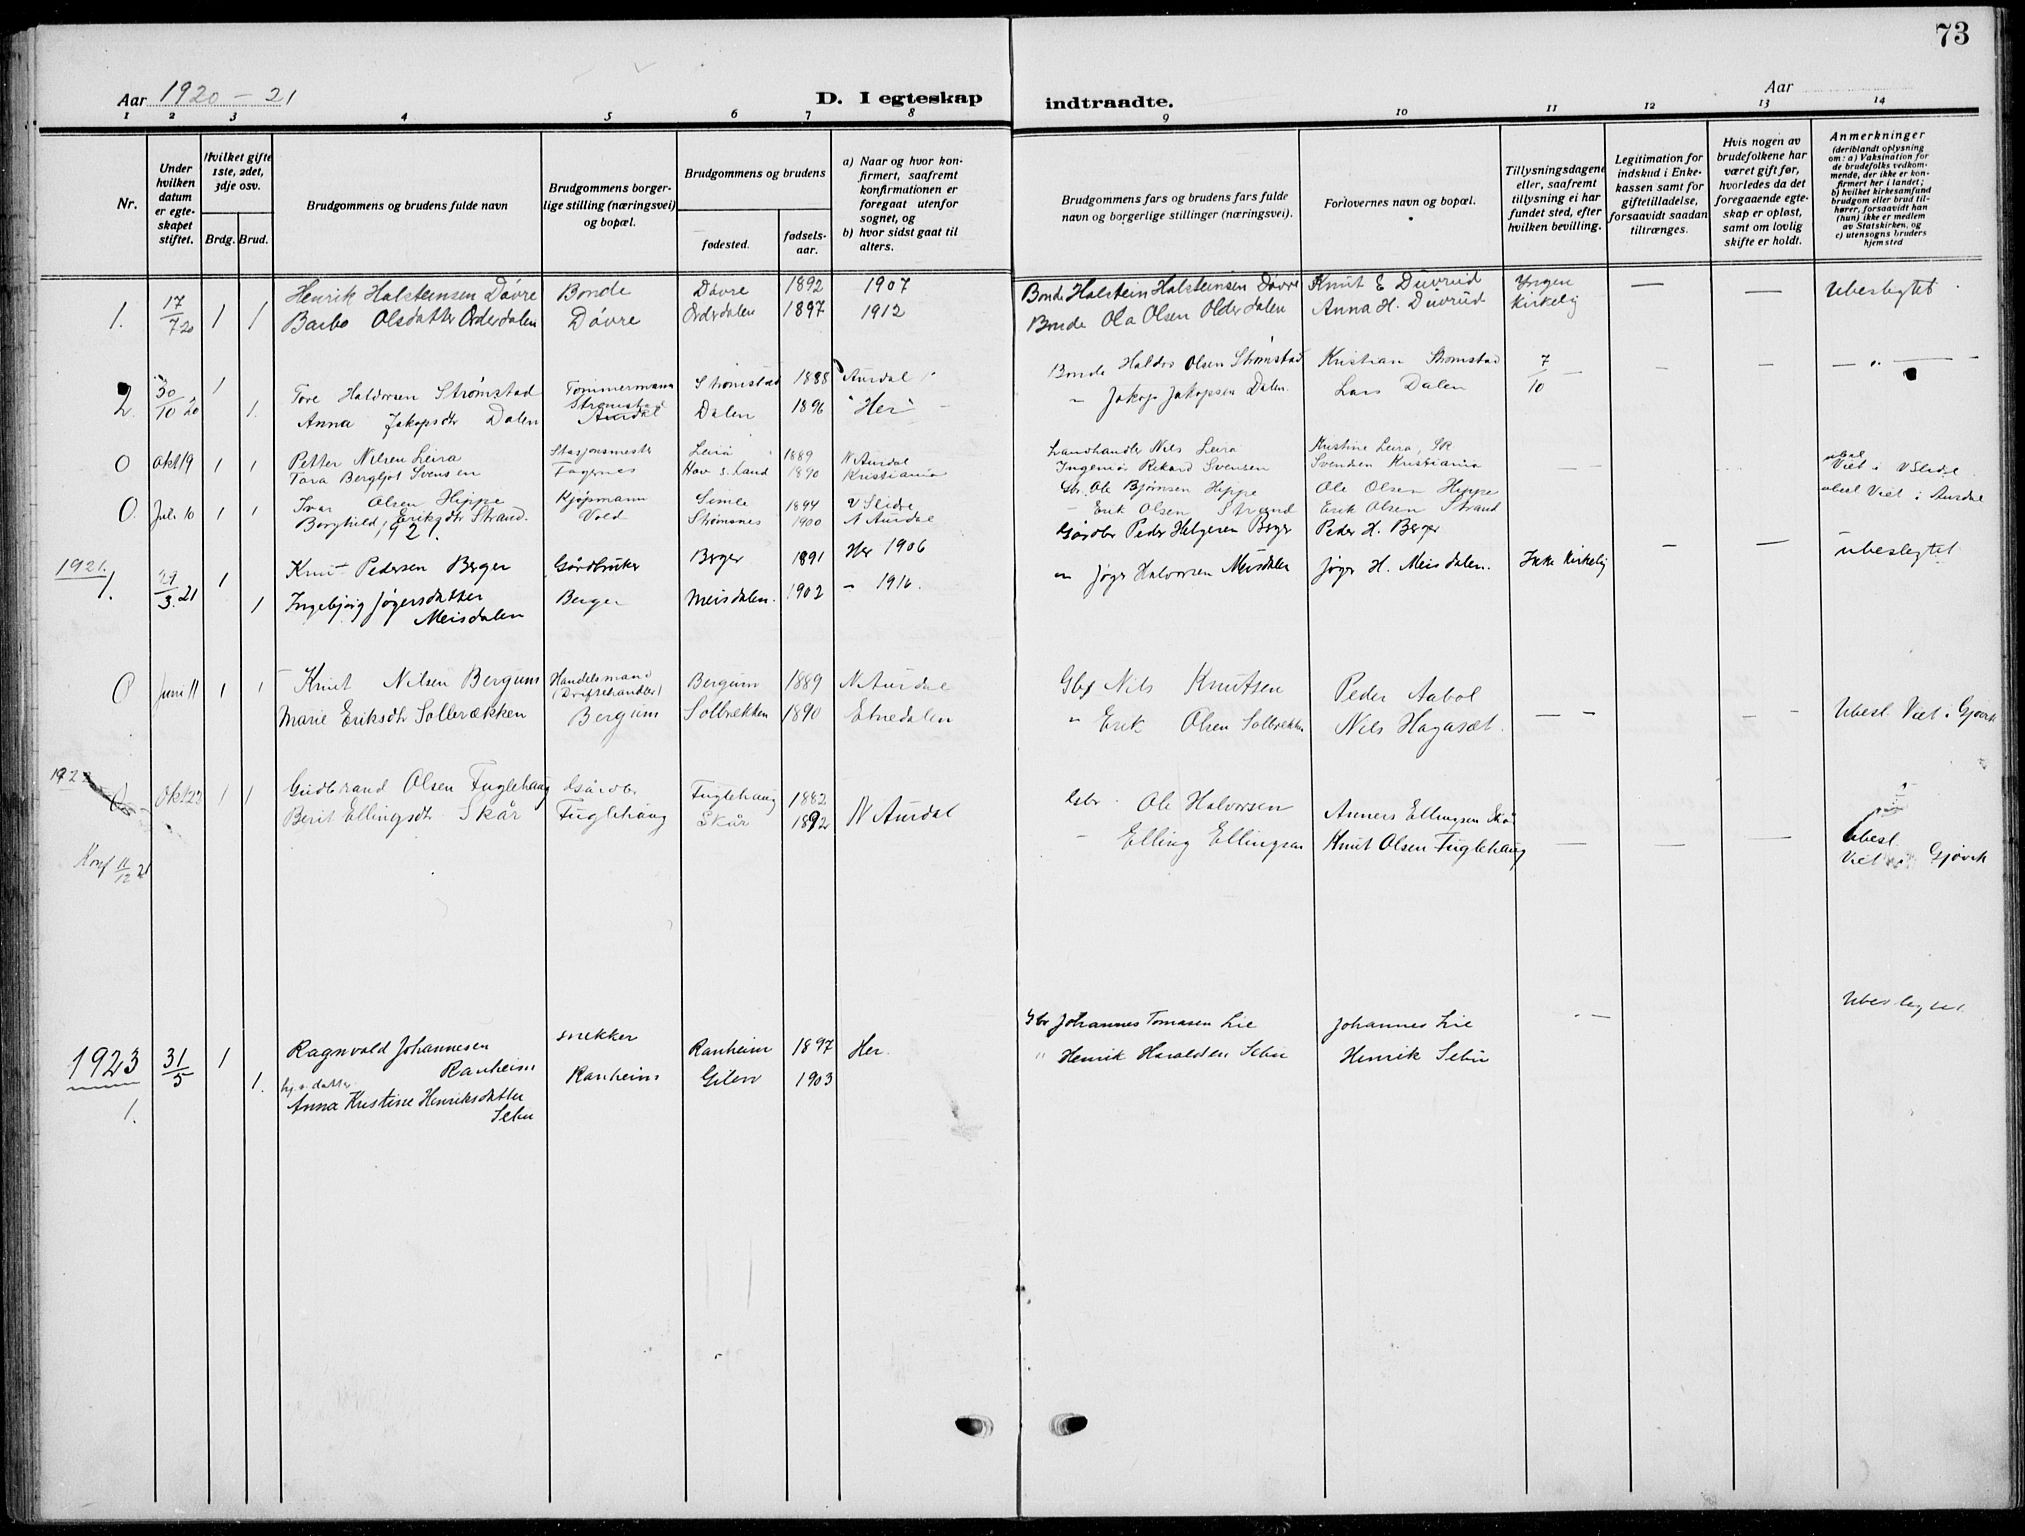 73
Aar 1920 - 21
D. I egteskap
indtraadte.
Aar
1 2 3 4 5 6 7 8 9 10 11 12 13 14
Nr.
Under hvilken datum er egteskapet stiftet.
Hvilket gifte 1ste, 2det, 3dje osv.
Brdg. Brud.
Brudgommens og brudens fulde navn
Brudgommens borgerlige stilling (næringsvei) og bopæl.
Brudgommens og brudens
fødested.
fødselsaar.
a) Naar og hvor konfirmert, saafremt konfirmationen er foregaat utenfor sognet, og
b) hvor sidst gaat til alters.
Brudgommens fars og brudens fars fulde navn og borgerlige stillinger (næringsvei).
Forlovernes navn og bopæl.
Tillysningsdagene eller, saafremt tillysning ei har fundet sted, efter hvilken bevilling.
Legitimation for indskud i Enkekassen samt for giftetilladelse, forsaavidt saadan tiltrænges.
Hvis nogen av brudefolkene har været gift før, hvorledes da det foregaaende egteskap er opløst, samt om lovlig skifte er holdt.
Anmerkninger
(deriblandt oplysning om: a) Vaksination for de brudefolks vedkommende, der ikke er konfirmert her i landet; b) hvilket kirkesamfund brudgom eller brud tilhører, forsaavidt han (hun) ikke er medlem av Statskirken, og c) utensogns bruders hjemsted
Henrik Halsteinsen Døvre Bonde Døvre 1892 1907 Bonde Halstein Halsteinsen Døvre Knut E Duvrud Yngen — — Ubeslegtet
1. 17/7 20 1 1 Barbo Olsdatter Orderdalen Døvre Orderdalen 1897 1912 Bonde Ola Olsen Olderdalen Anna H. Duvrud Kirkelig
2. 30/10 20 1 Tore Haldorsen Strømstad Tømmermann Strømstad 1888 Aurdal Bonde Haldor Olsen Strømstad Kristian Strømstad 7/10 — — — " —
1. Anna Jakopsdtr Dalen Strømstad Aurdal Dalen 1896 "Her" " Jakop Jakopsen Dalen. Lars Dalen
0 Okt 19 1 1 Petter Nilsen Leira Stasjonsmester Leira 1889 N Aurdal Landhandler Nils Leira Kristine Leira,
Tora Bergljot Svensen Fagernes Hav S. Land 1890 Kristiania Ingeniør Rikard Svensen Svendsen Kristiania ubesl Viet i V Slidre
0. Jul. 10 1 1 Ivar Olsen Hippe Kjøpmann Semle 1894 V Slidre Gbr. Ole Bjørnsen Hippe Ole Olsen Hippe ubesl Viet i Aurdal
Borghild Eriksdtr Strand. Vold Strømsnes 1900 N Aurdal — Erik Olsen Strand Erik Olsen Strand
1921.
1921. Knut Pedersen Berger Gårdbruker Berger 1891 Her 1906 Gårdbr Peder Helgesen Berger Peder H. Berger — — ubeslegtet
1. 29/3. 21 1 1 Ingebjørg Jøgersdatter Meisdalen Berger Meisdalen. 1902 — 1916. " Jøger Halvorsen Meisdalen Jøger H. Meisdalen. Ikke kirkelig
0 Juni 11 1 1 Knut Nilsen Bergum Handelsmand (Driftehandler) Bergum 1889 N Aurdal Gbr Nils Knutsen Peder Aabol
Marie Eriksdtr Solbrækken Bergum Solbrekken 1890 Etnedalen " Erik Olsen Solbrekken Nils Hagasæt. — — — — Ubesl. Viet i Gjøvik
1922
0 Okt 22 1 1 Gudbrand Olsen Fuglehaug Gårdbr Fuglehaug 1882 Gbr. Ole Halvorsen Anners Ellingsen Skår
Berit Ellingsdtr Skår Fuglehaug Skår 1892 N Aurdal — Elling Ellingsen Knut Olsen Fuglehaug — — — Ubesl.
Viet i Gjøvik
Konf 11/12 21
snekker Gbr Johannes Tomasen Lie Johannes Lie — Ubeslegtet
1923 31/5 1 Ragnvald Johannesen Ranheim Ranheim 1897 Her. " Henrik Haraldsen Sebu Henrik Sebu
1. Anna Kristine Henriksdatter Sebu Ranheim 1903
1.